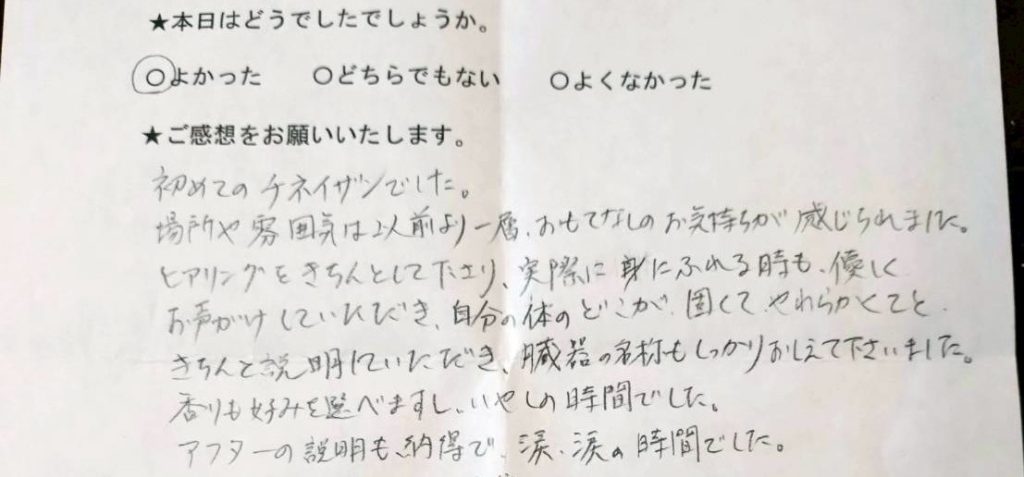 ★本日はどうでしたでしょうか。
○よかった ○どちらでもない ○よくなかった
★ご感想をお願いいたします。
初めてのチネイザンでした。
場所や雰囲気は以前より一層、おもてなしのお気持ちが感じられました。
ヒアリングをきちんとして下さり、実際に身にふれる時も、優しく
お声がけしていただき、自分の体のどこが、固くて、やわらかくてと、
きちんと説明していただき、臓器の名称もしっかりおしえて下さいました。
香りも好みを選べますし、いやしの時間でした。
アフターの説明も、納得で、涙、涙の時間でした。